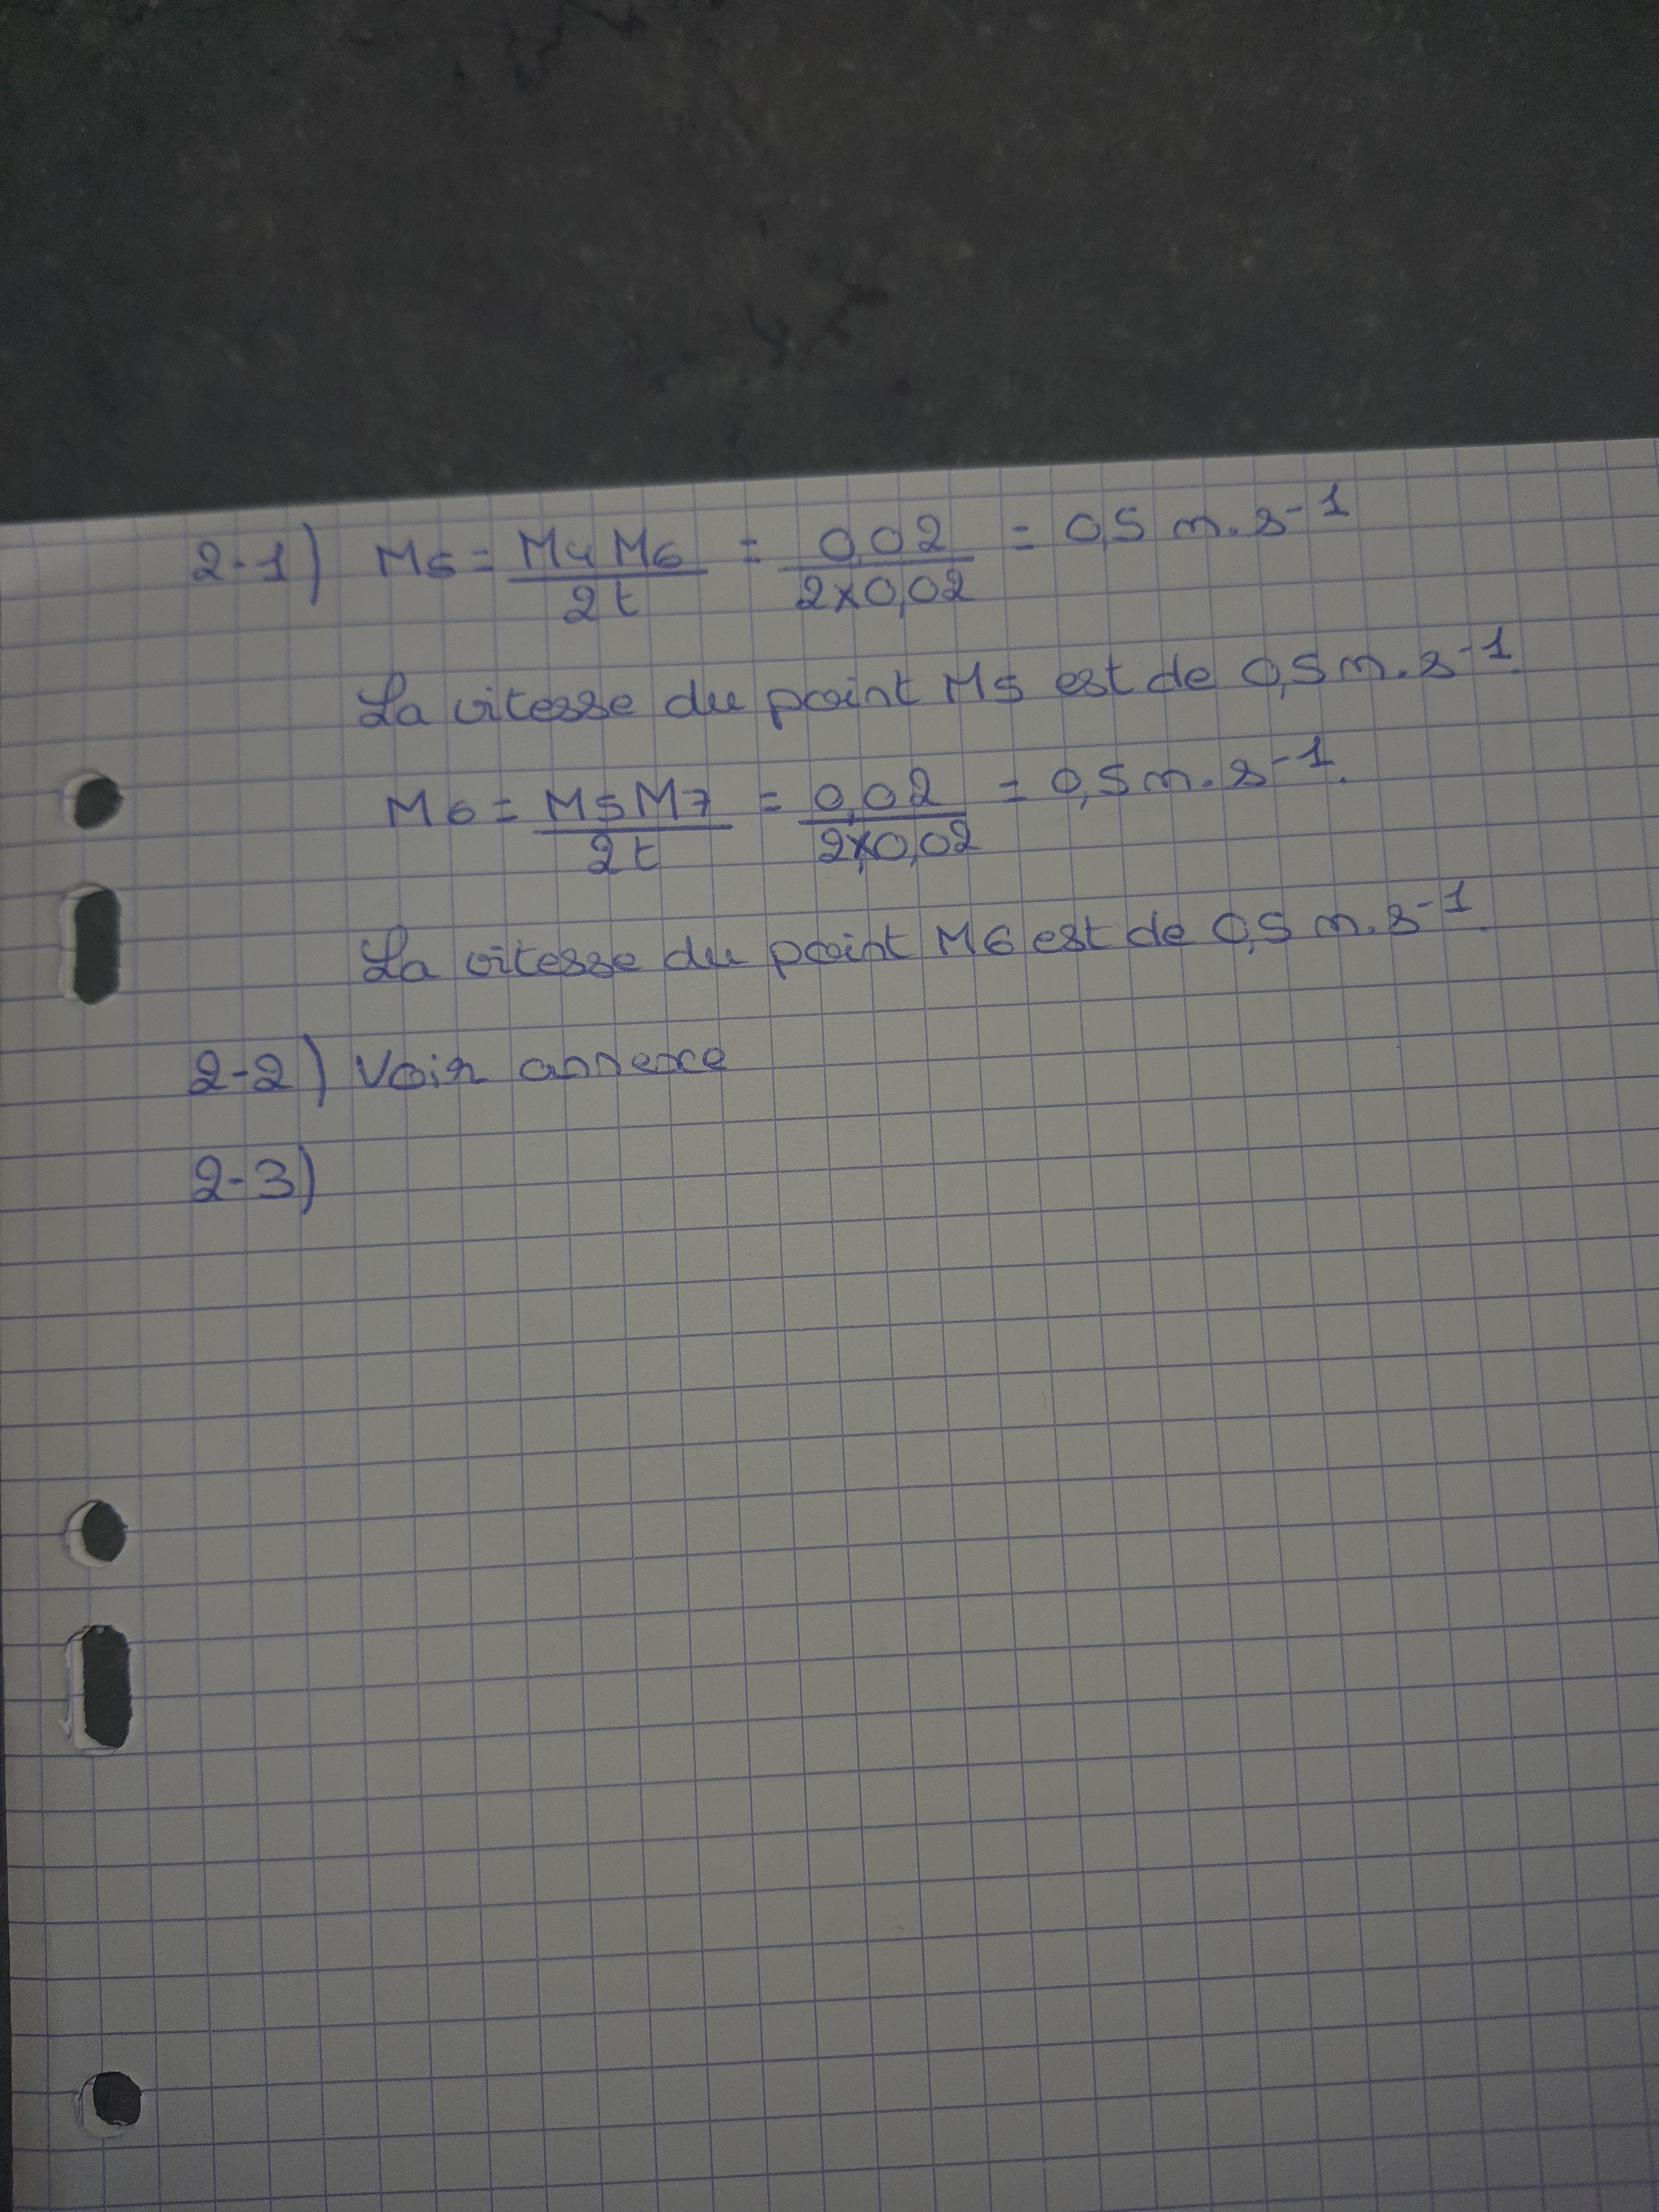 2-1) M5 = M4M6 / 2t = 0,02 / 2x0,02 = 0,5 m.s-1
La vitesse du point M5 est de 0,5 m.s-1.
M6 = M5M7 / 2t = 0,02 / 2x0,02 = 0,5 m.s-1.
La vitesse du point M6 est de 0,5 m.s-1.
2-2) Voir annexe
2-3)